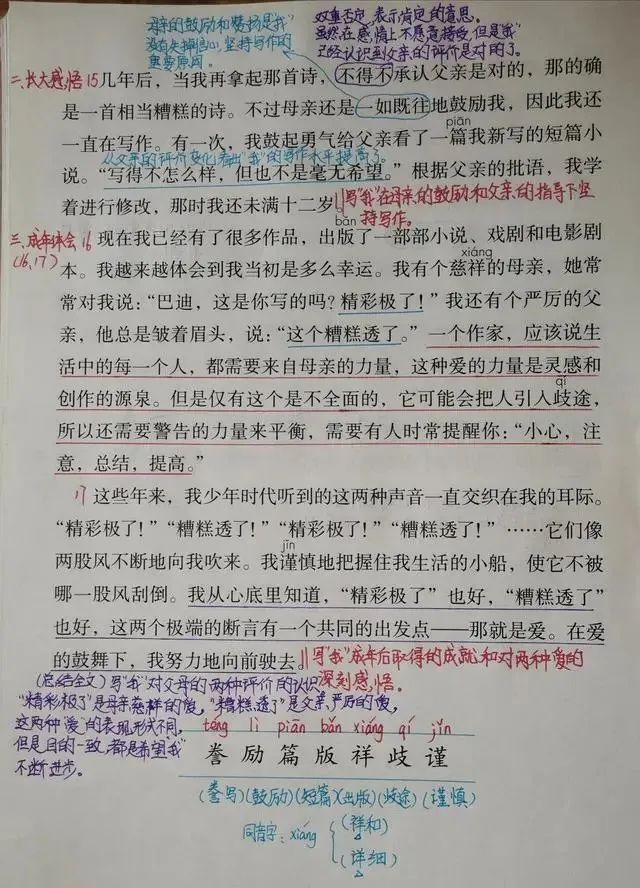 母亲的鼓励和赞扬是"我"
没有失掉信心,坚持写作的
重要原因。
双重否定,表示肯定的意思。
虽然在感情上不愿意接受,但是"我"
已经认识到父亲的评价是对的了。
二、长大感悟 15 几年后,当我再拿起那首诗,不得不承认父亲是对的,那的确
是一首相当糟糕的诗。不过母亲还是一如既往地鼓励我,因此我还
piān
一直在写作。有一次,我鼓起勇气给父亲看了一篇我新写的短篇小
从父亲的评价变化看出"我"的写作水平提高了。
说。“写得不怎么样,但也不是毫无希望。”根据父亲的批语,我学
着进行修改,那时我还未满十二岁。
写"我"在母亲的鼓励和父亲的指导下坚
持写作。
bǎn
三、成年体会 16 现在我已经有了很多作品,出版了一部部小说、戏剧和电影剧
(16,17)
本。我越来越体会到我当初是多么幸运。我有个慈祥的母亲,她常
xiáng
常对我说:“巴迪,这是你写的吗?精彩极了!”我还有个严厉的父
亲,他总是皱着眉头,说:“这个糟糕透了。”一个作家,应该说生
活中的每一个人,都需要来自母亲的力量,这种爱的力量是灵感和
创作的源泉。但是仅有这个是不全面的,它可能会把人引入歧途,
qí
所以还需要警告的力量来平衡,需要有人时常提醒你:“小心,注
意,总结,提高。”
17 这些年来,我少年时代听到的这两种声音一直交织在我的耳际。
“精彩极了!”“糟糕透了!”“精彩极了!”“糟糕透了!”……它们像
jǐn
两股风不断地向我吹来。我谨慎地把握住我生活的小船,使它不被
哪一股风刮倒。我从心底里知道,“精彩极了”也好,“糟糕透了”
也好,这两个极端的断言有一个共同的出发点——那就是爱。在爱
的鼓舞下,我努力地向前驶去。
写"我"成年后取得的成就,和对两种爱的
深刻感悟。
(总结全文)写"我"对父母的两种评价的认识
"精彩极了"是母亲慈祥的爱,"糟糕透了"是父亲严厉的爱,
这两种"爱"的表现形式不同,
但是目的一致,都是希望"我"
不断进步。
téng lì piān bǎn xiáng qí jǐn
誊 励 篇 版 祥 歧 谨
(誊写)(鼓励)(短篇)(出版)(歧途)(谨慎)
同音字:xiáng
(祥和)
(详细)